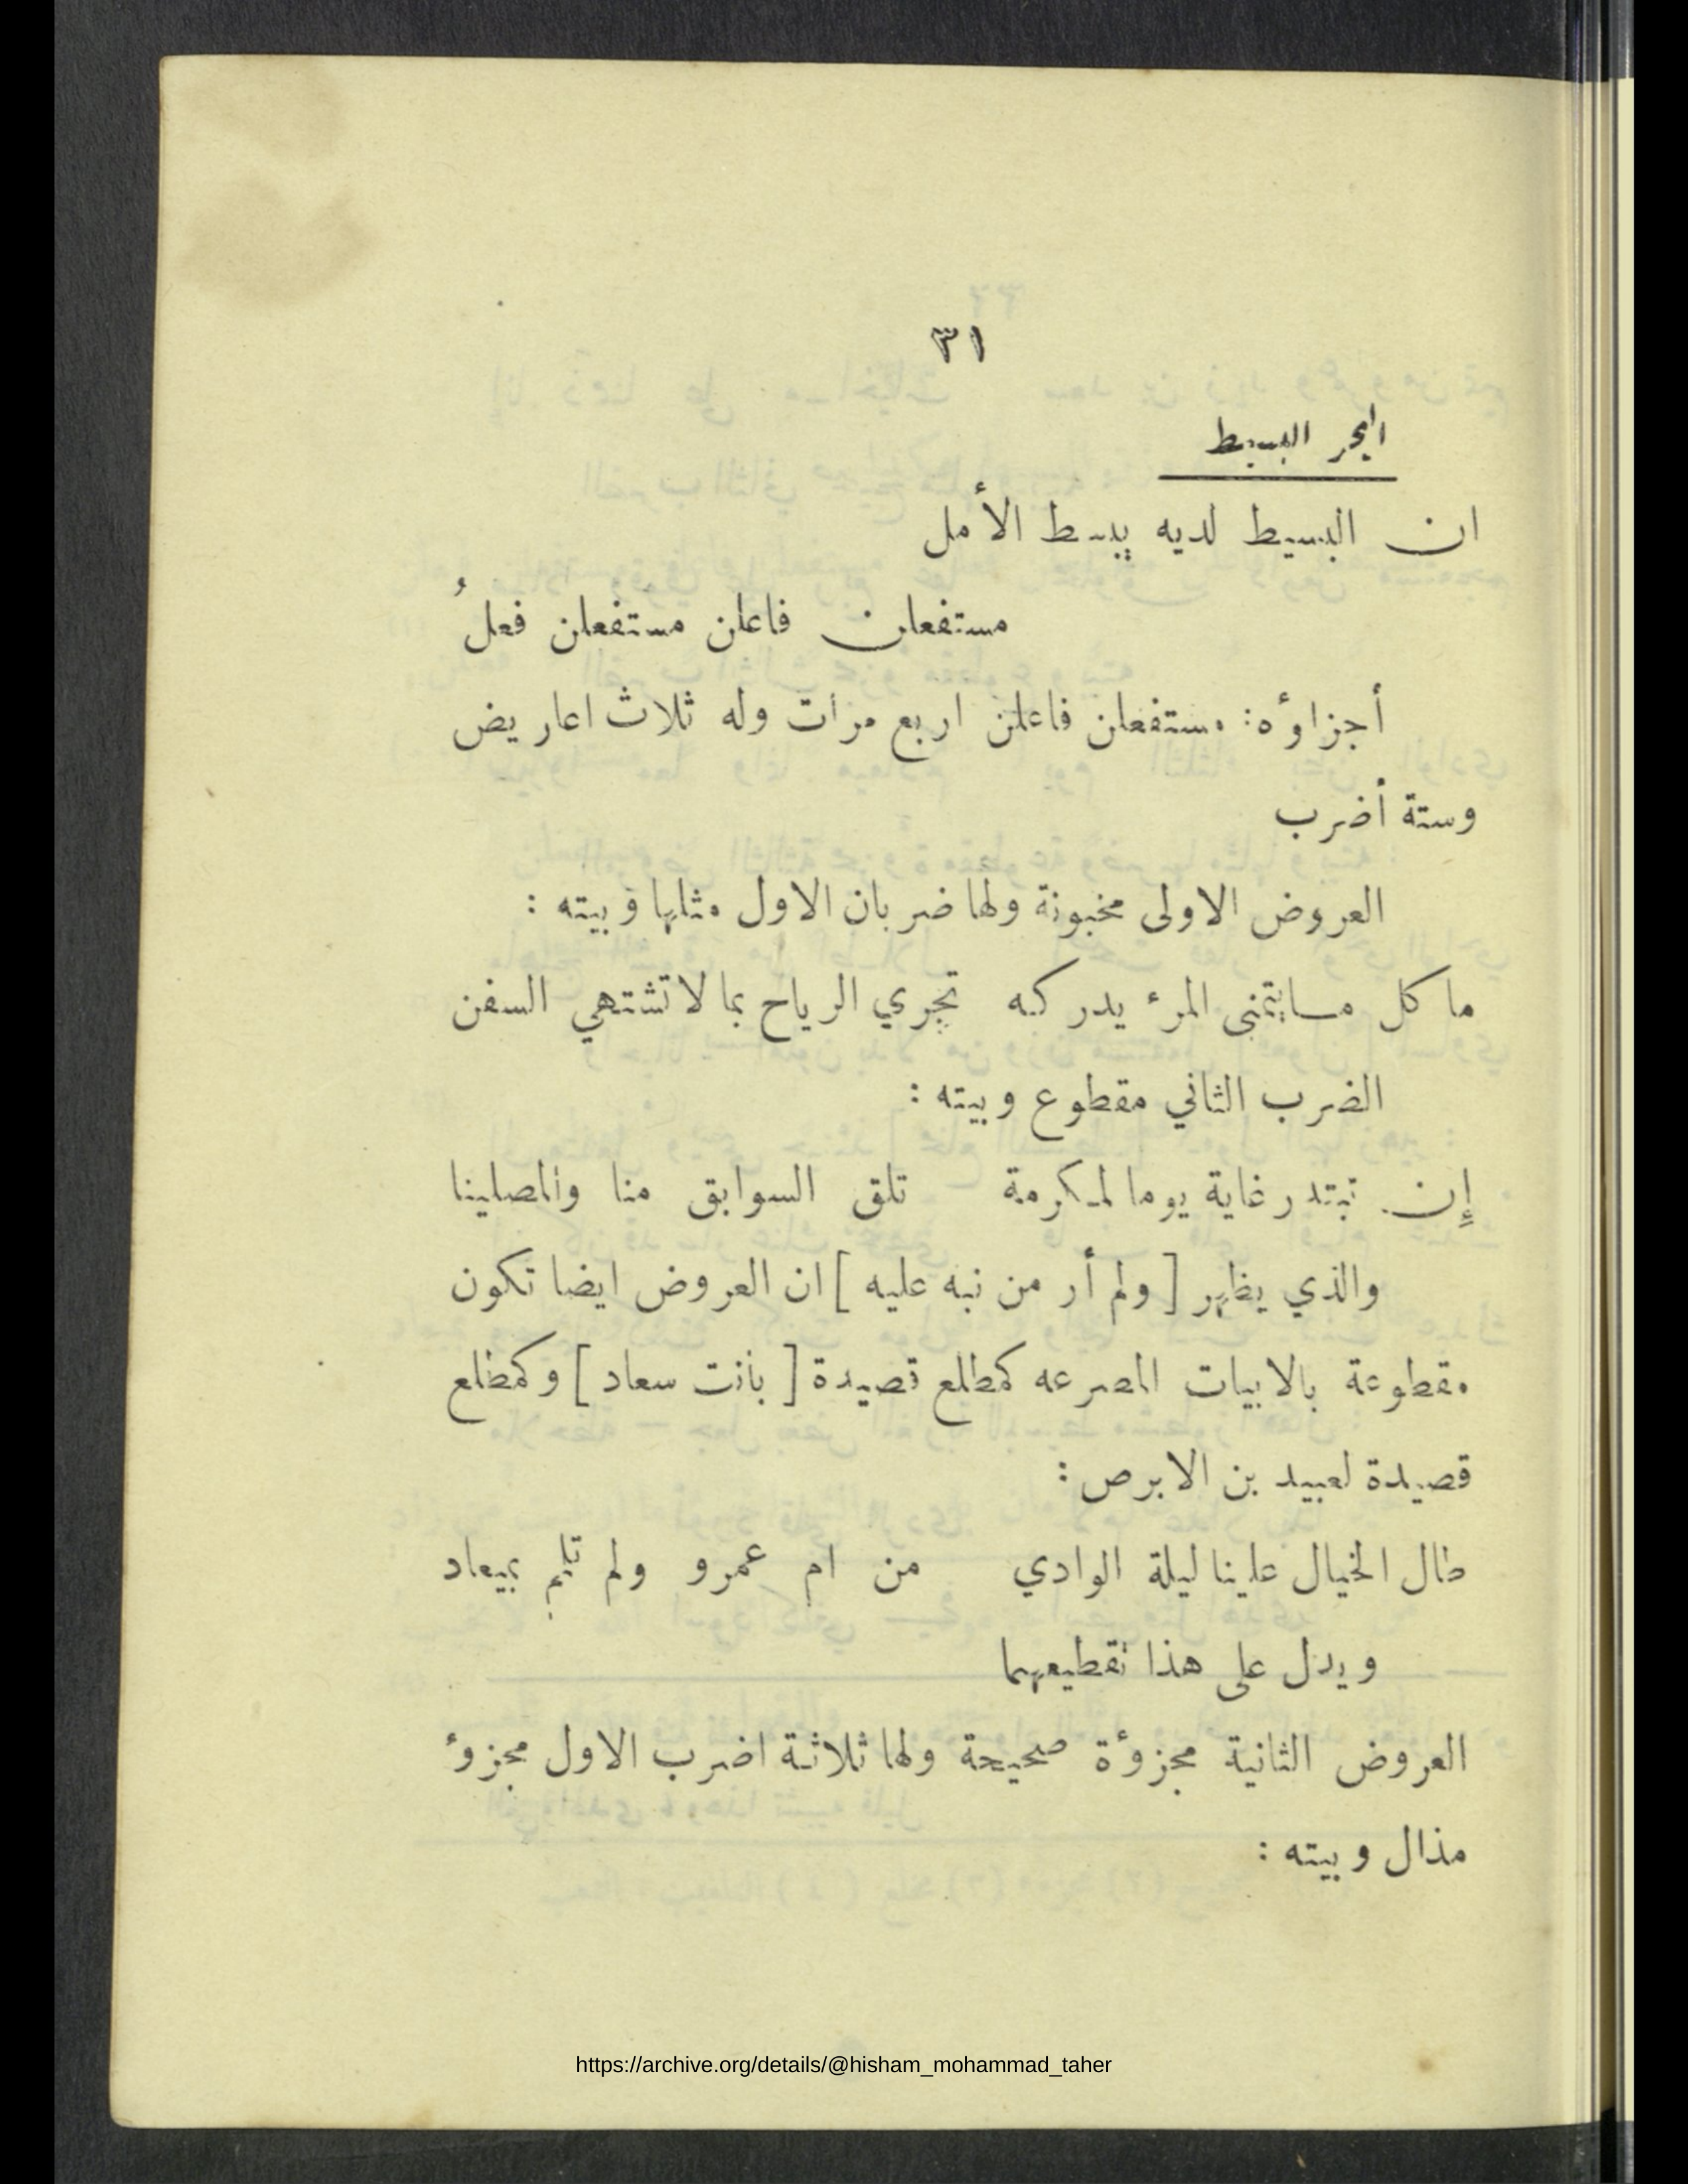 ٣١
البحر البسيط
ان البسيط لديه يبسط الأمل
مستفعلن فاعلن مستفعلن فعلُ
أجزاؤه: مستفعلن فاعلن اربع مرات وله ثلاث اعاريض
وستة أضرب
العروض الاولى مخبونة ولها ضربان الاول مثلها وبيته :
ما كل مايتمنى المرء يدركه تجري الرياح بما لا تشتهي السفن
الضرب الثاني مقطوع وبيته :
إِن تبتدر غاية يوما لمكرمة تلق السوابق منا والمصلينا
والذي يظهر [ ولم أر من نبه عليه ] ان العروض ايضا تكون
مقطوعة بالابيات المصرعه كمطلع قصيدة [ بانت سعاد ] وكمطلع
قصيدة لعبيد بن الابرص :
طال الخيال علينا ليلة الوادي من ام عمرو ولم تلم بميعاد
ويدل على هذا تقطيعهما
العروض الثانية مجزوءة صحيحة ولها ثلاثة اضرب الاول مجزوء
مذال وبيته :
https://archive.org/details/@hisham_mohammad_taher